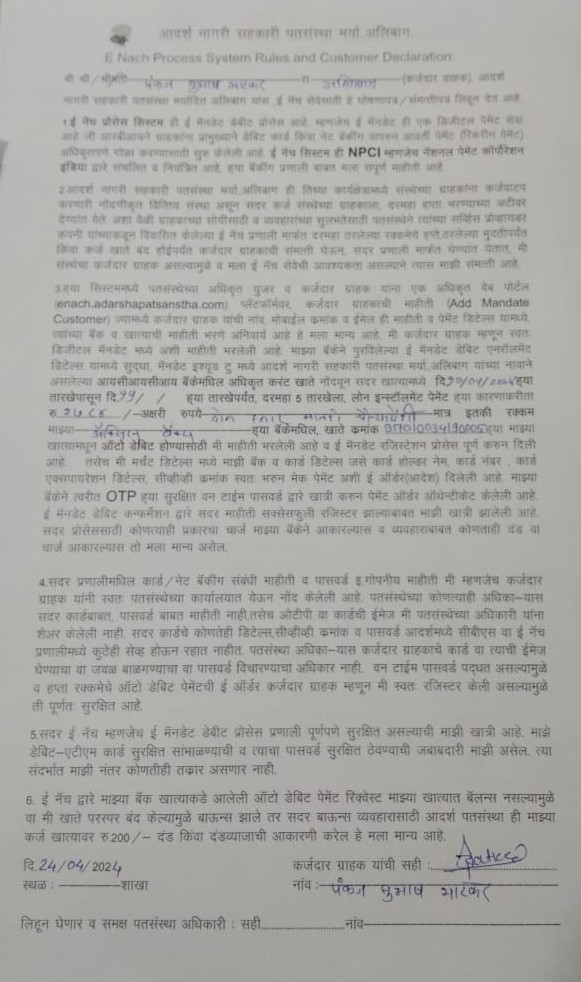 आदर्श नागरी सहकारी पतसंस्था मर्या.अलिबाग.
E Nach Process System Rules and Customer Declaration:
मी श्री/श्रीमती पंकज सुभाष भाटकर रा. अलिबाग (कर्जदार ग्राहक). आदर्श
नागरी सहकारी पतसंस्था मर्यादित अलिबाग यांस .ई नॅच सेवेसाठी हे घोषणापत्र/संमतीपत्र लिहून देत आहे.
1.ई नॅच प्रोसेस सिस्टम ही ई मॅनडेट डेबीट प्रोसेस आहे. म्हणजेच ई मॅनडेट ही एक डिजीटल पेमेंट सेवा
आहे जी आरबीआयने ग्राहकांना प्रामुख्याने डेबिट कार्ड किंवा नेट बॅंकींग वापरुन आवर्ती पेमेंट (रिकरींग पेमेंट)
अधिकृतपणे गोळा करण्यासाठी सुरु केलेली आहे. ई नॅच सिस्टम ही NPCI म्हणजेच नॅशनल पेमेंट कॉर्पोरेशन
इंडिया द्वारे संचलित व नियंत्रित आहे. हया बॅंकींग प्रणाली बाबत मला संपूर्ण माहीती आहे.
2.आदर्श नागरी सहकारी पतसंस्था मर्या.अलिबाग ही तिच्या कार्यक्षेत्रामध्ये संस्थेच्या ग्राहकांना कर्जवाटप
करणारी नोंदणीकृत वित्तिय संस्था असून सदर कर्ज संस्थेच्या ग्राहकाला, दरमहा हप्ता भरण्याच्या अटीवर
देण्यांत येते. अशा वेळी ग्राहकाच्या सोयीसाठी व व्यवहारांच्या सुलभतेसाठी पतसंस्थेने त्यांच्या सर्व्हिस प्रोव्हायडर
कंपनी यांच्याकडून विकसित केलेल्या ई नॅच प्रणाली मार्फत दरमहा ठरलेल्या रक्कमेचे हप्ते,ठरलेल्या मुदतीपर्यंत
किंवा कर्ज खाते बंद होईपर्यंत कर्जदार ग्राहकाची संमत्ती घेऊन, सदर प्रणाली मार्फत घेण्यांत येतात, मी
संस्थेचा कर्जदार ग्राहक असल्यामुळे व मला ई नॅच सेवेची आवश्यकता असल्याने त्यास माझी संमत्ती आहे.
3.हया सिस्टिममध्ये पतसंस्थेच्या अधिकृत युजर व कर्जदार ग्राहक यांना एक अधिकृत वेब पोर्टल
(enach.adarshapatsanstha.com) प्लेटफॉर्मवर, कर्जदार ग्राहकाची माहीती (Add Mandate
Customer) ज्यामध्ये कर्जदार ग्राहक यांची नांव, मोबाईल क्रमांक व ईमेल ही माहीती व पेमेंट डिटेल्स यामध्ये
त्यांच्या बॅंक व खात्याची माहीती भरणे अनिवार्य आहे हे मला मान्य आहे. मी कर्जदार ग्राहक म्हणून स्वतः
डिजीटल मॅनडेट मध्ये अशी माहीती भरलेली आहे. माझ्या बॅंकेने पुरविलेल्या ई मॅनडेट डेबिट एनरोलमेंट
डिटेल्स यामध्ये सुद्धा, मॅनडेट इश्यूड टु मध्ये आदर्श नागरी सहकारी पतसंस्था मर्या,अलिबाग यांच्या नावाने
असलेल्या आयसीआयसीआय बॅंकेमधिल अधिकृत करंट खाते नोंदवून सदर खात्यामध्ये दि.10/04/2024हया
तारखेपासून दि.11/ / हया तारखेपर्यंत, दरमहा 5 तारखेला, लोन इन्स्टॉलमेंट पेमेंट हया कारणाकरीता
रु.2784 /-अक्षरी रुपये दोन हजार सातशे चौऱ्याऐंशी मात्र इतकी रक्कम
माझ्या बॅंक हया बॅंकेमधिल, खाते क्रमांक हया माझ्या
खात्यामधून ऑटो डेबिट होण्यासाठी मी माहीती भरलेली आहे व ई मॅनडेट रजिस्ट्रेशन प्रोसेस पूर्ण करुन दिली
आहे. तसेच मी मर्चंट डिटेल्स मध्ये माझी बॅंक व कार्ड डिटेल्स जसे कार्ड होल्डर नेम, कार्ड नंबर , कार्ड
एक्सपायरशन डिटेल्स, सीव्हीव्ही क्रमांक स्वतः भरुन मेक पेमेंट अशी ई ऑर्डर(आदेश) दिलेली आहे. माझ्या
बॅंकेने त्वरीत OTP हया सुरक्षित वन टाईम पासवर्ड द्वारे खात्री करुन पेमेंट ऑर्डर ऑथेन्टीकेट केलेली आहे.
ई मॅनडेट डेबिट कन्फर्मेशन द्वारे सदर माहीती सक्सेसफुली रजिस्टर झाल्याबाबत माझी खात्री झालेली आहे.
सदर प्रोसेससाठी कोणत्याही प्रकारचा चार्ज माझ्या बॅंकेने आकारल्यास व व्यवहाराबाबत कोणताही दंड वा
चार्ज आकारल्यास तो मला मान्य असेल.
4.सदर प्रणालीमधिल कार्ड/नेट बॅंकींग संबंधी माहीती व पासवर्ड इ.गोपनीय माहीती मी म्हणजेच कर्जदार
ग्राहक यांनी स्वतः पतसंस्थेच्या कार्यालयात येऊन नोंद केलेली आहे. पतसंस्थेच्या कोणत्याही अधिका-यास
सदर कार्डबाबत, पासवर्ड बाबत माहीती नाही,तसेच ओटीपी वा कार्डची ईमेज मी पतसंस्थेच्या अधिकारी यांना
शेअर केलेली नाही. सदर कार्डचे कोणतेही डिटेल्स,सीव्हीव्ही क्रमांक व पासवर्ड आदर्शमध्ये सीबीएस वा ई नॅच
प्रणालीमध्ये कुठेही सेव्ह होऊन रहात नाहीत. पतसंस्था अधिका-यास कर्जदार ग्राहकाचे कार्ड वा त्याची ईमेज
घेण्याचा वा जवळ बाळगण्याचा वा पासवर्ड विचारण्याचा अधिकार नाही. वन टाईम पासवर्ड पद्धत असल्यामुळे
व हप्ता रक्कमेचे ऑटो डेबिट पेमेंटची ई ऑर्डर कर्जदार ग्राहक म्हणून मी स्वतः रजिस्टर केली असल्यामुळे
ती पूर्णतः सुरक्षित आहे.
5.सदर ई नॅच म्हणजेच ई मॅनडेट डेबीट प्रोसेस प्रणाली पूर्णपणे सुरक्षित असल्याची माझी खात्री आहे. माझे
डेबिट–एटीएम कार्ड सुरक्षित सांभाळण्याची व त्याचा पासवर्ड सुरक्षित ठेवण्याची जबाबदारी माझी असेल. त्या
संदर्भात माझी नंतर कोणतीही तक्रार असणार नाही.
6. ई नॅच द्वारे माझ्या बॅंक खात्याकडे आलेली ऑटो डेबिट पेमेंट रिक्वेस्ट माझ्या खात्यात बॅलन्स नसल्यामुळे
वा मी खाते परस्पर बंद केल्यामुळे बाऊन्स झाले तर सदर बाऊन्स व्यवहारासाठी आदर्श पतसंस्था ही माझ्या
कर्ज खात्यावर रु.200/– दंड किंवा दंडव्याजाची आकारणी करेल हे मला मान्य आहे.
दि.24/04/2024 कर्जदार ग्राहक यांची सही :
स्थळ : शाखा नांव : पंकज सुभाष भाटकर
लिहून घेणार व समक्ष पतसंस्था अधिकारी : सही नांव